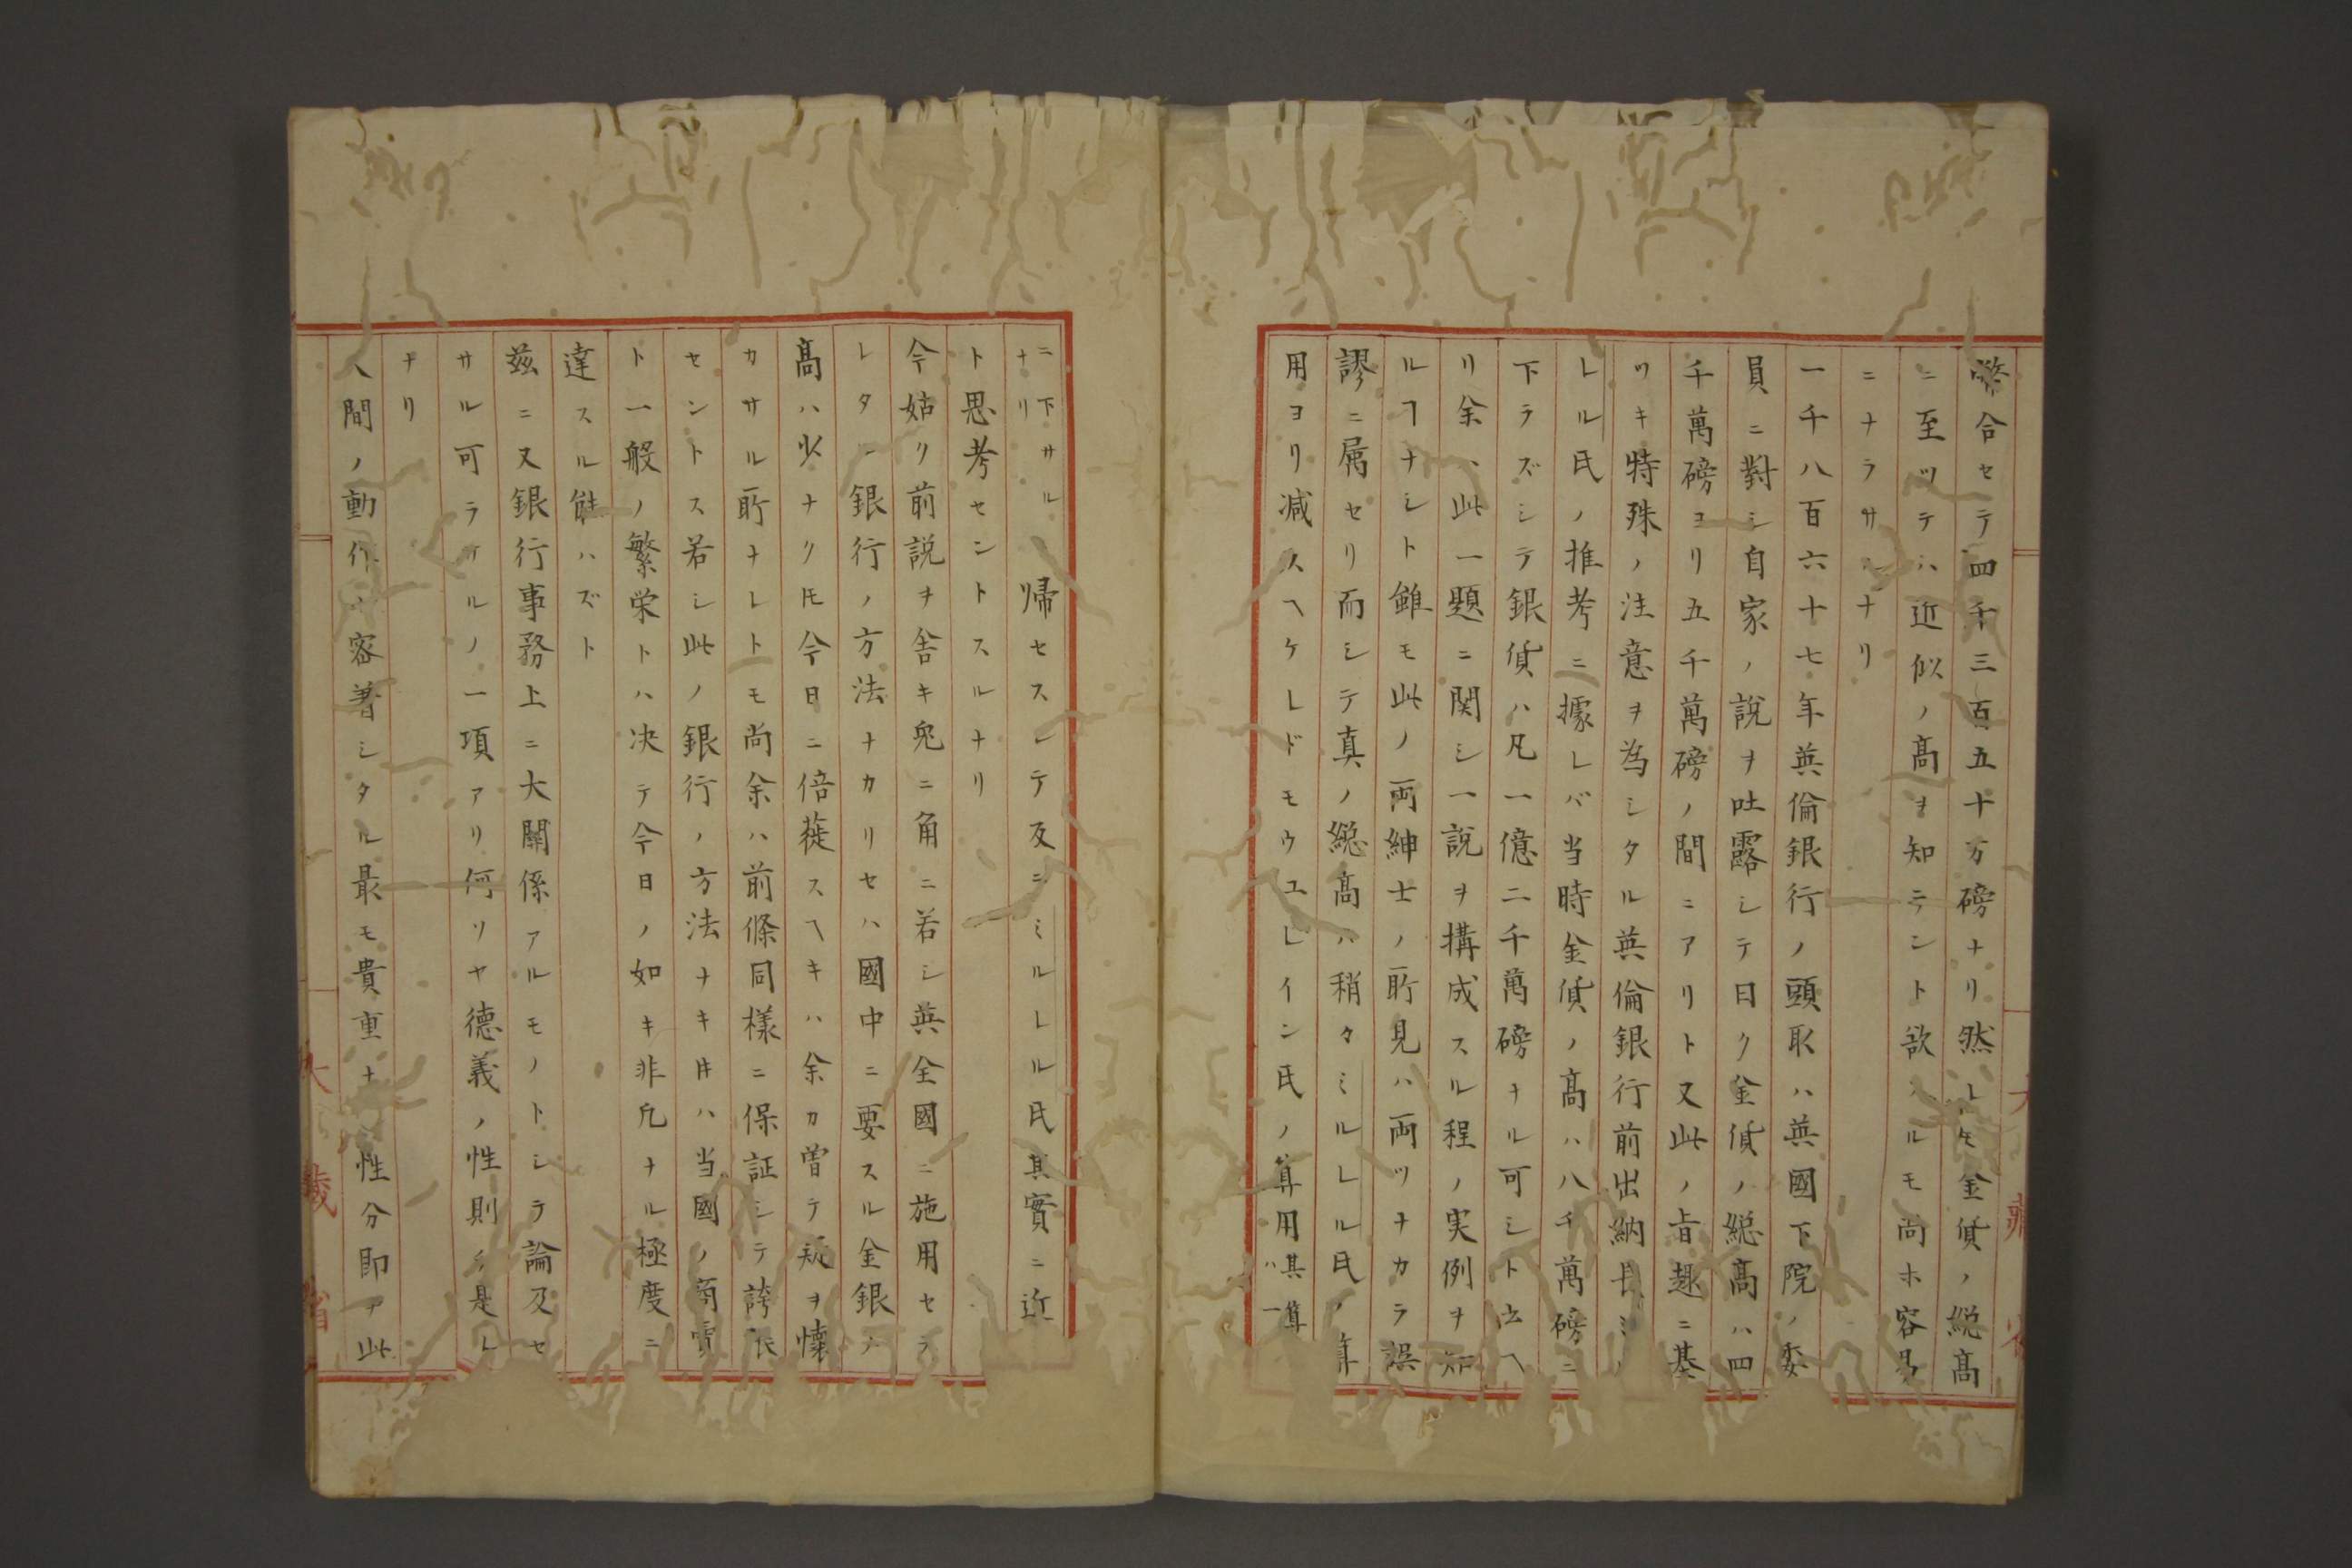 幣合セテ四千三百五十万磅ナリ然レ𪜈金貨ノ総高
ニ至ツテハ近似ノ高ヲ知ラント欲スルモ尚ホ容易
ニナラサルナリ
一千八百六十七年英倫銀行ノ頭取ハ英國下院ノ委
員ニ對シ自家ノ説ヲ吐露シテ曰ク金貨ノ総高ハ四
千萬磅ヨリ五千萬磅ノ間ニアリト又此ノ旨趣ニ基
ツキ特殊ノ注意ヲ為シタル英倫銀行前出納長ミル
レル氏ノ推考ニ據レバ当時金貨ノ高ハ八千萬磅ニ
下ラズシテ銀貨ハ凡一億二千萬磅ナル可シト云ヘ
リ余ハ此一題ニ関シ一説ヲ搆成スル程ノ実例ヲ知
ルヿナシト雖モ此ノ両紳士ノ所見ハ両ツナカラ誤
謬ニ属セリ而シテ真ノ総高ハ稍々ミルレル氏ノ算
用ヨリ减スヘケレドモウエレイン氏ノ算用其算ハ一
ニ下サルナリ 帰セスシテ反ニミルレル氏其實ニ近
ト思考セントスルナリ
今姑ク前説ヲ舎キ兎ニ角ニ若シ英全國ニ施用セラ
レタル銀行ノ方法ナカリセハ國中ニ要スル金銀ノ
高ハ少ナクモ今日ニ倍蓰スヘキハ余カ曽テ疑ヲ懐
カサル所ナレトモ尚余ハ前條同様ニ保証シテ誇張
セントス若シ此ノ銀行ノ方法ナキ𪜈ハ当國ノ商賣
ト一般ノ繁栄トハ决テ今日ノ如キ非凡ナル極度ニ
達スル能ハズト
茲ニ又銀行事務上ニ大關係アルモノトシテ論及セ
サル可ラサルノ一項アリ何ソヤ德義ノ性則チ是レ
ナリ
人間ノ動作ニ容著シタル最モ貴重ナ性分即チ此
大藏省